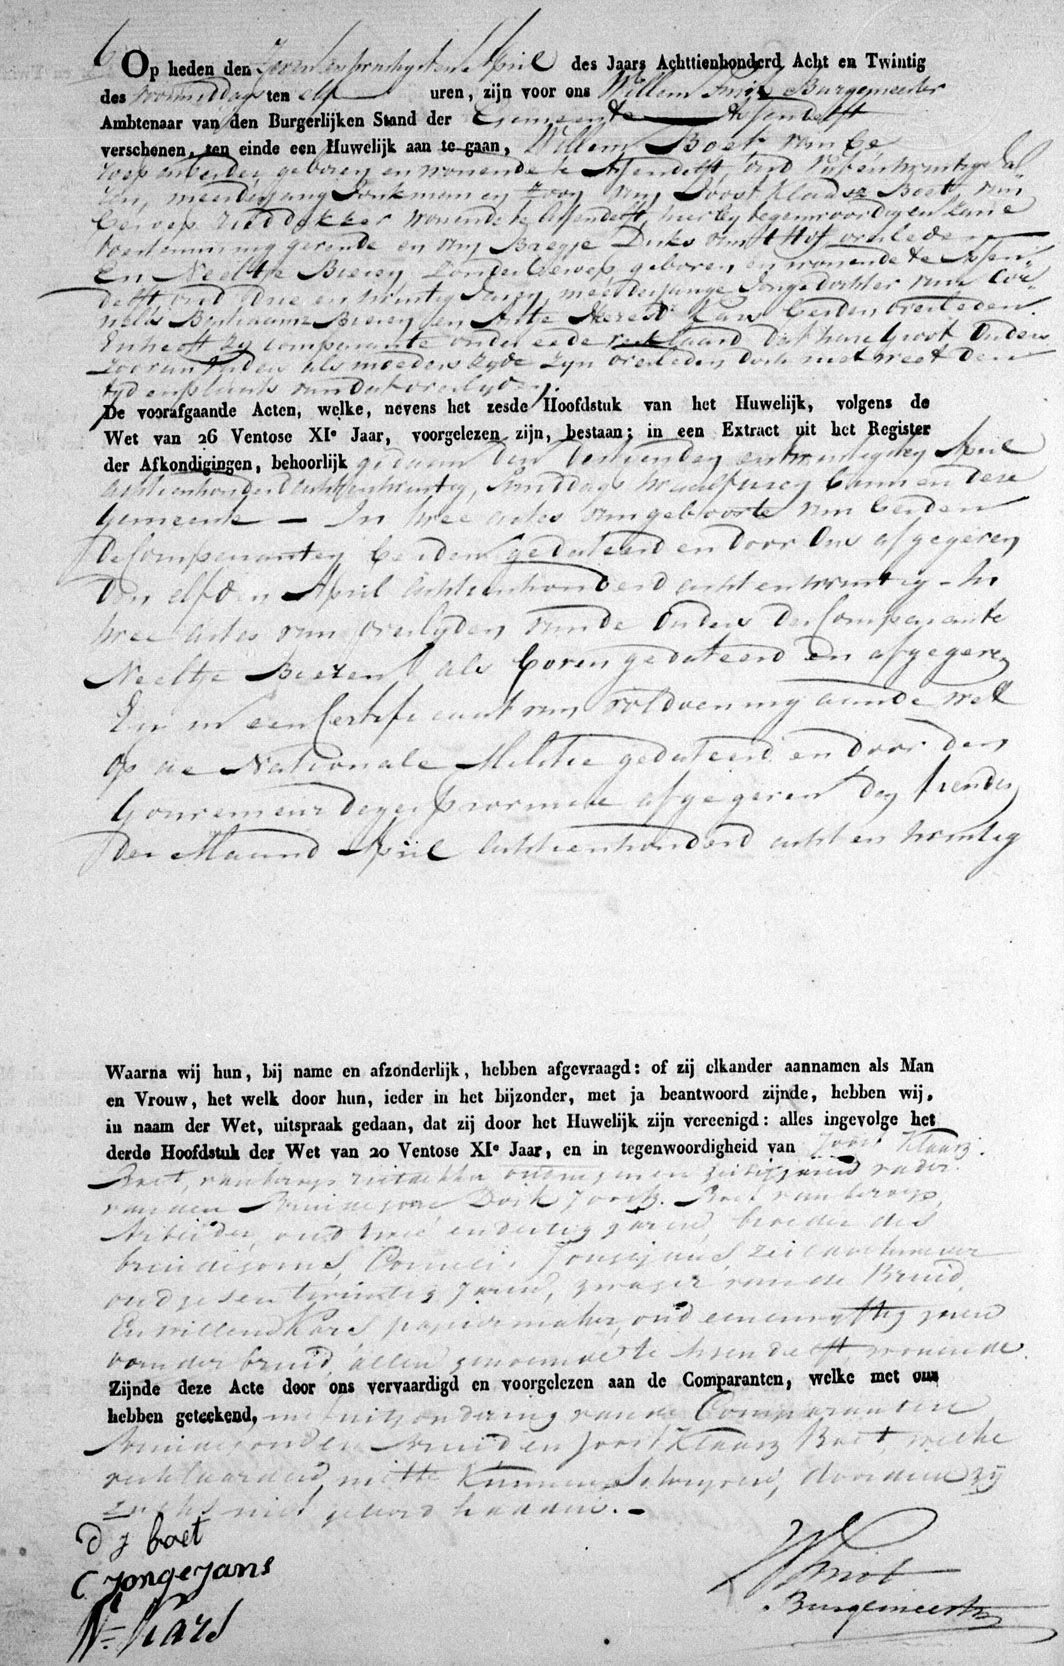 6 Op heden den Zeven en twintigsten April des Jaars Achttienhonderd Acht en Twintig
des voormiddags ten elf uren, zijn voor ons Willem Smit Burgemeester
Ambtenaar van den Burgerlijken Stand der Gemeente Assendelft
verschenen, ten einde een Huwelijk aan te gaan, Willem Boet van be
roep arbeider geboren en wonende te Assendelft, oud vyfentwintig Ja
ren, meerderjarig Jonkman en Zoon van Joost Klaasz Boet, van
beroep rietdekker wonende te Assendelft, hierby tegenwoordig en zyne
toestemming gevende en van Bregje Dirks van 't Hof overleden
En Neeltje Biezen zonder beroep geboren en wonende te Assen
delft oud drie en twintig Jaren, meerderjarige Jongedochter van Cor
nelis Biezen en Kars beiden overleden.
En heeft zy comparante onder eede verklaard dat hare Groot Ouders
zoo van vaders als moeders zyde zyn overleden doch niet weet den
tyd en plaats van dat overlyden.
De voorafgaande Acten, welke, nevens het zesde Hoofdstuk van het Huwelijk, volgens de
Wet van 26 Ventose XIe Jaar, voorgelezen zijn, bestaan; in een Extract uit het Register
der Afkondigingen, behoorlijk gedaan den en twintigsten April
achttienhonderd achtentwintig, smiddags twaalf uren binnen deze
Gemeente – In twee actes van geboorte van beiden
de Comparanten beiden gedateerd en door Ons afgegeven
den elfden April achttienhonderd acht en twintig – In
twee actes van overlyden van de Ouders der Comparante
Neeltje Biezen als boven gedateerd en afgegeven
En in een Certificaat van voldoening aan de wet
op de Nationale Militie gedateerd en door den
Gouverneur dezer provincie afgegeven den tienden
der Maand April achttienhonderd acht en twintig
Waarna wij hun, bij name en afzonderlijk, hebben afgevraagd: of zij elkander aannamen als Man
en Vrouw, het welk door hun, ieder in het bijzonder, met ja beantwoord zijnde, hebben wij,
in naam der Wet, uitspraak gedaan, dat zij door het Huwelijk zijn vereenigd: alles ingevolge het
derde Hoofdstuk der Wet van 20 Ventose XIe Jaar, en in tegenwoordigheid van Joost Klaasz.
Boet, van beroep rietdekker oud een en zestig jaren vader
van den Bruidegom Dirk Joostz. Boet van beroep
Arbeider, oud twee en dertig jaren, broeder des
bruidegoms, Cornelis Jongejans, zeildoekwever
oud zes en twintig jaren, zwager van de Bruid,
En willem Kars papiermaker, oud een en vyftig jaren
oom der bruid, allen genoemde te Assendelft, wonende.
Zijnde deze Acte door ons vervaardigd en voorgelezen aan de Comparanten, welke met ons
hebben geteekend, met uitzondering van de Comparanten
Bruidegom en Bruid en Joost Klaasz Boet welke
verklaarden, niet te kunnen schryven, doordien zij
zulks niet geleerd hadden. –
D J boet
C Jongejans
W= Kars
W Smit
Burgemeester